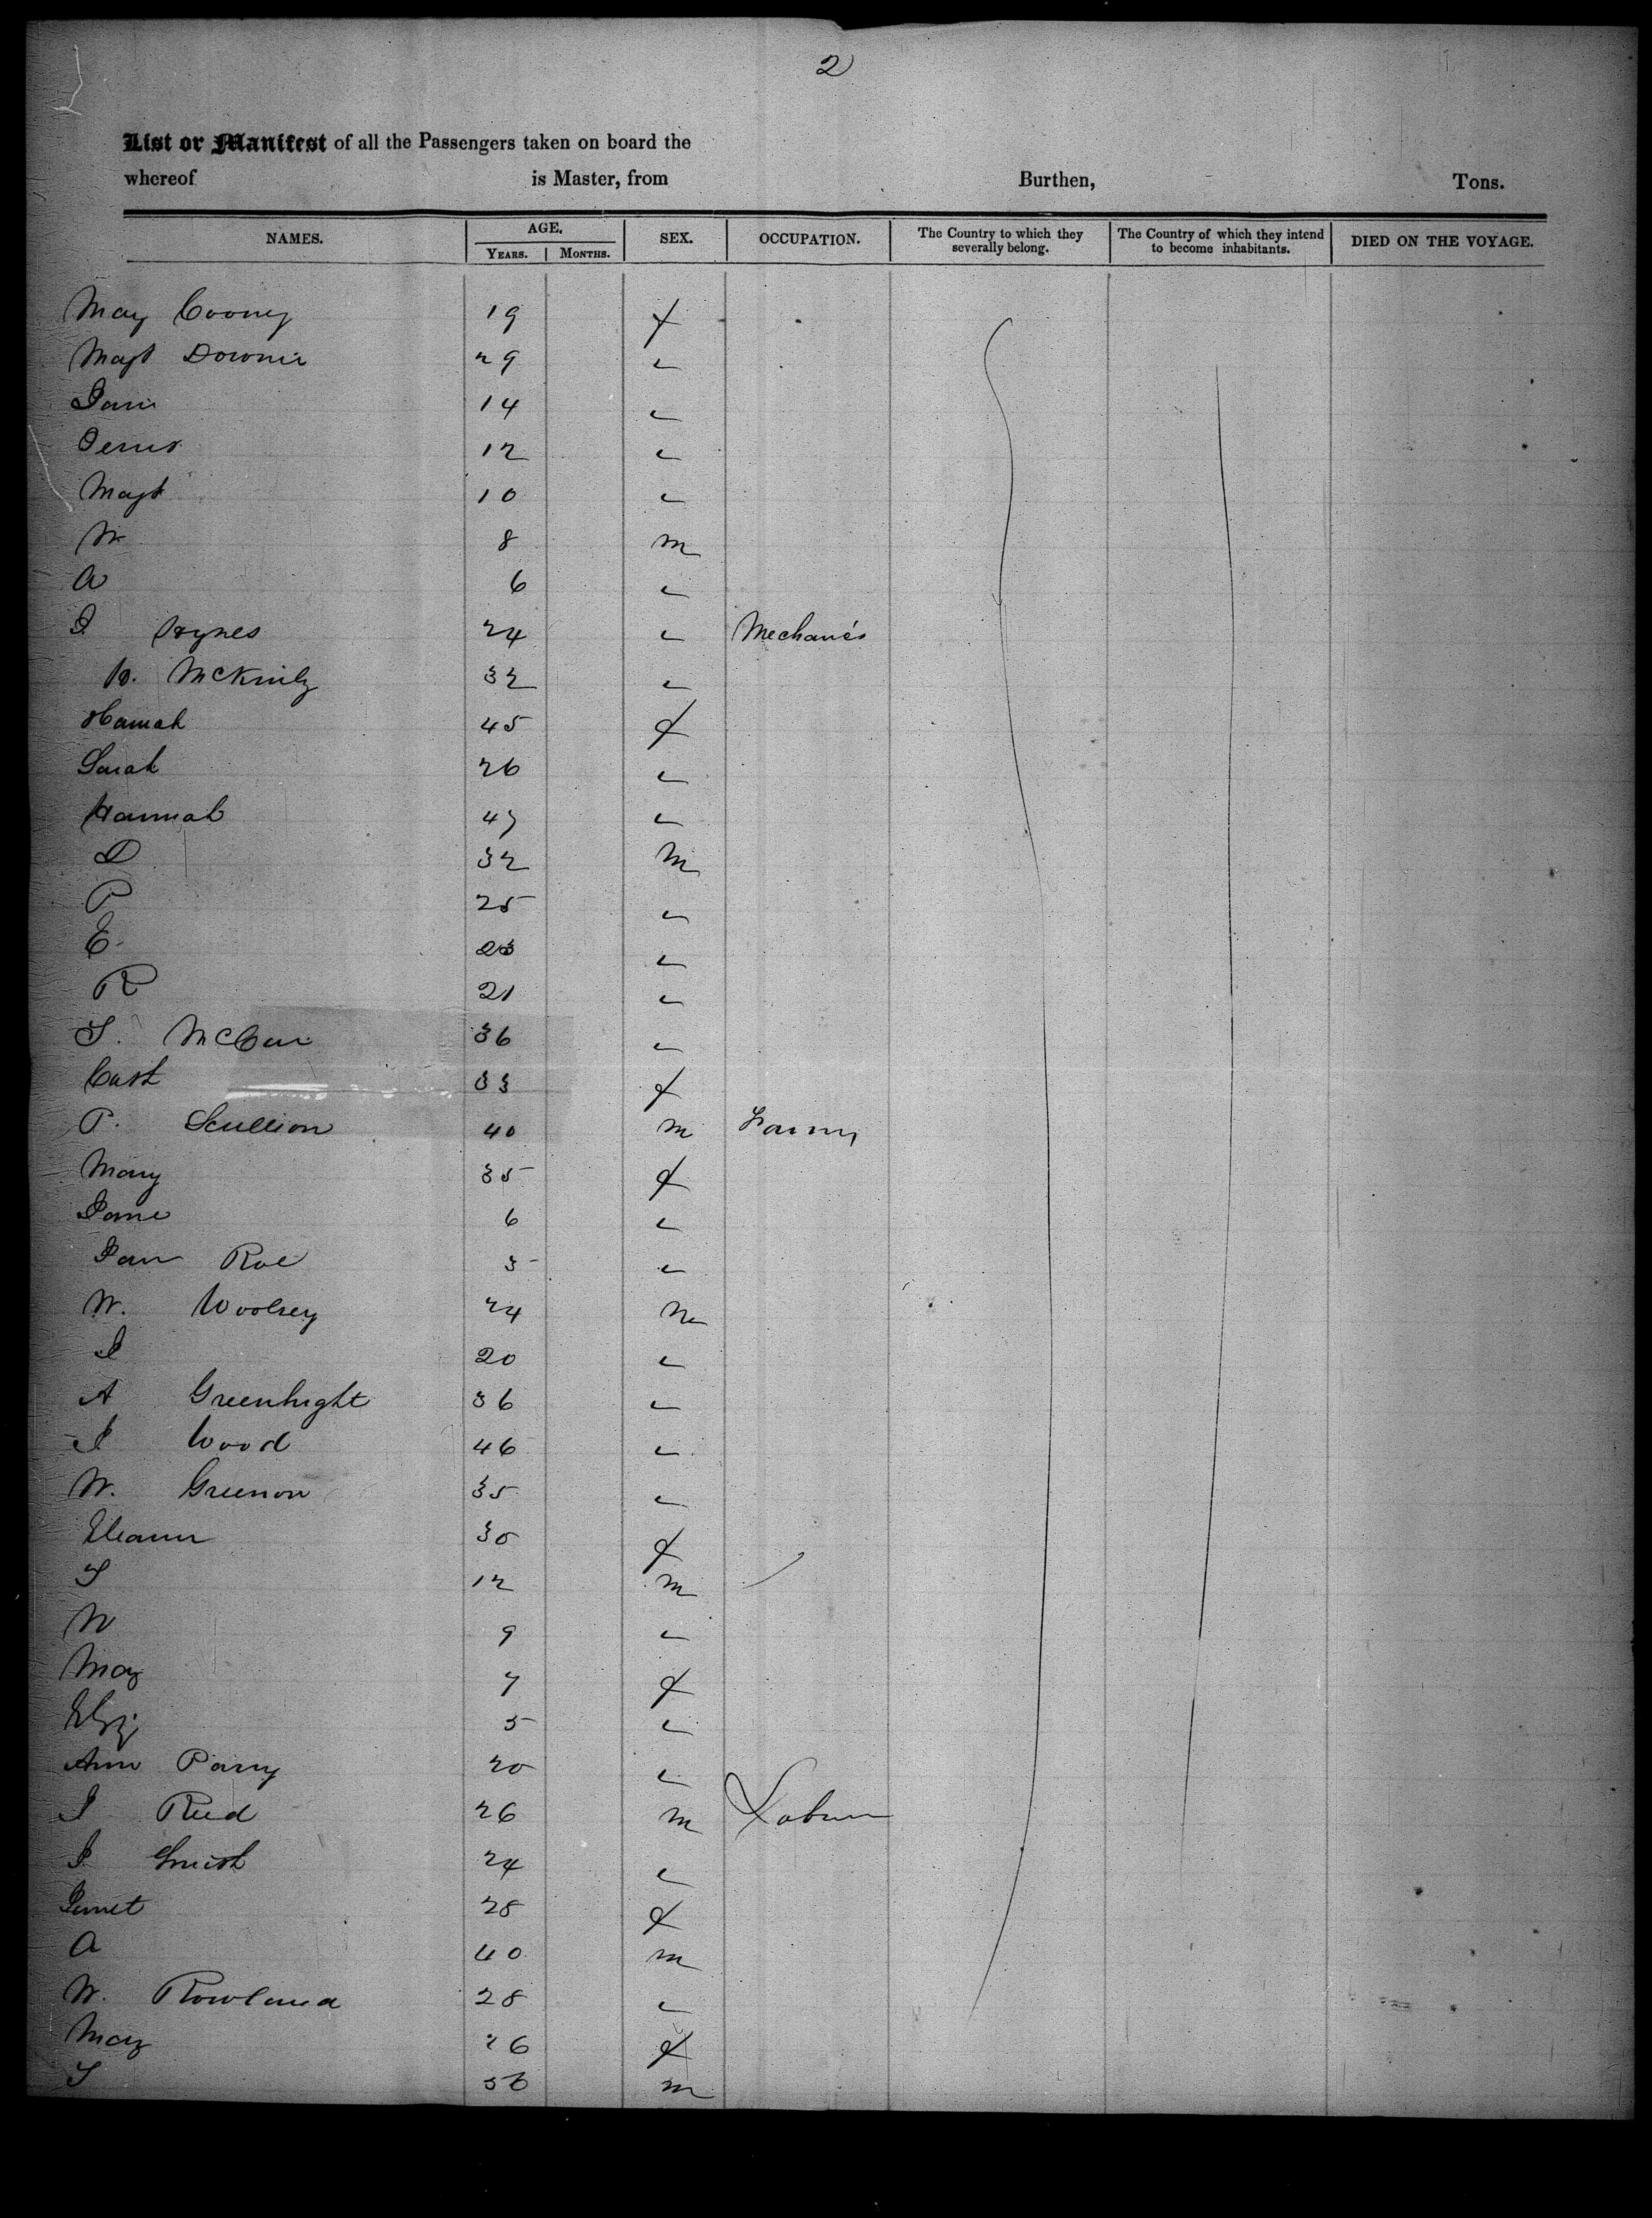 2
List or Manifest of all the Passengers taken on board the
whereof is Master, from Burthen, Tons.
NAMES. AGE. SEX. OCCUPATION. The Country to which they severally belong. The Country of which they intend to become inhabitants. DIED ON THE VOYAGE.
YEARS. MONTHS.
May Cooney 19 f
Magt Downie 29 "
Jane 14 "
12 "
Magt 10 "
W 8 m
A 6 "
J Hynes 24 " Mechanics
H. McKinly 32 "
Hannah 45 f
Sarah 26 "
Hannah 47 "
D 32 m
P 25 "
E 23 "
R 21 "
S. 36 "
Cath 33 f
P. Scullion 40 m Farmer
Mary 35 f
Jane 6 "
Jane Roe 3 "
W. Woolsey 24 m
J 20 "
A Greenhight 36 "
J Wood 46 "
W. Greenon 35 "
Eleanor 30 f
S 12 m
W 9 "
May 7 f
Eliz 5 "
Ann Parry 20 "
J Reed 26 m Labourer
J Smith 24 "
Jennet 28 f
A 40 m
W. Rowland 28 "
May 26 f
S 56 m